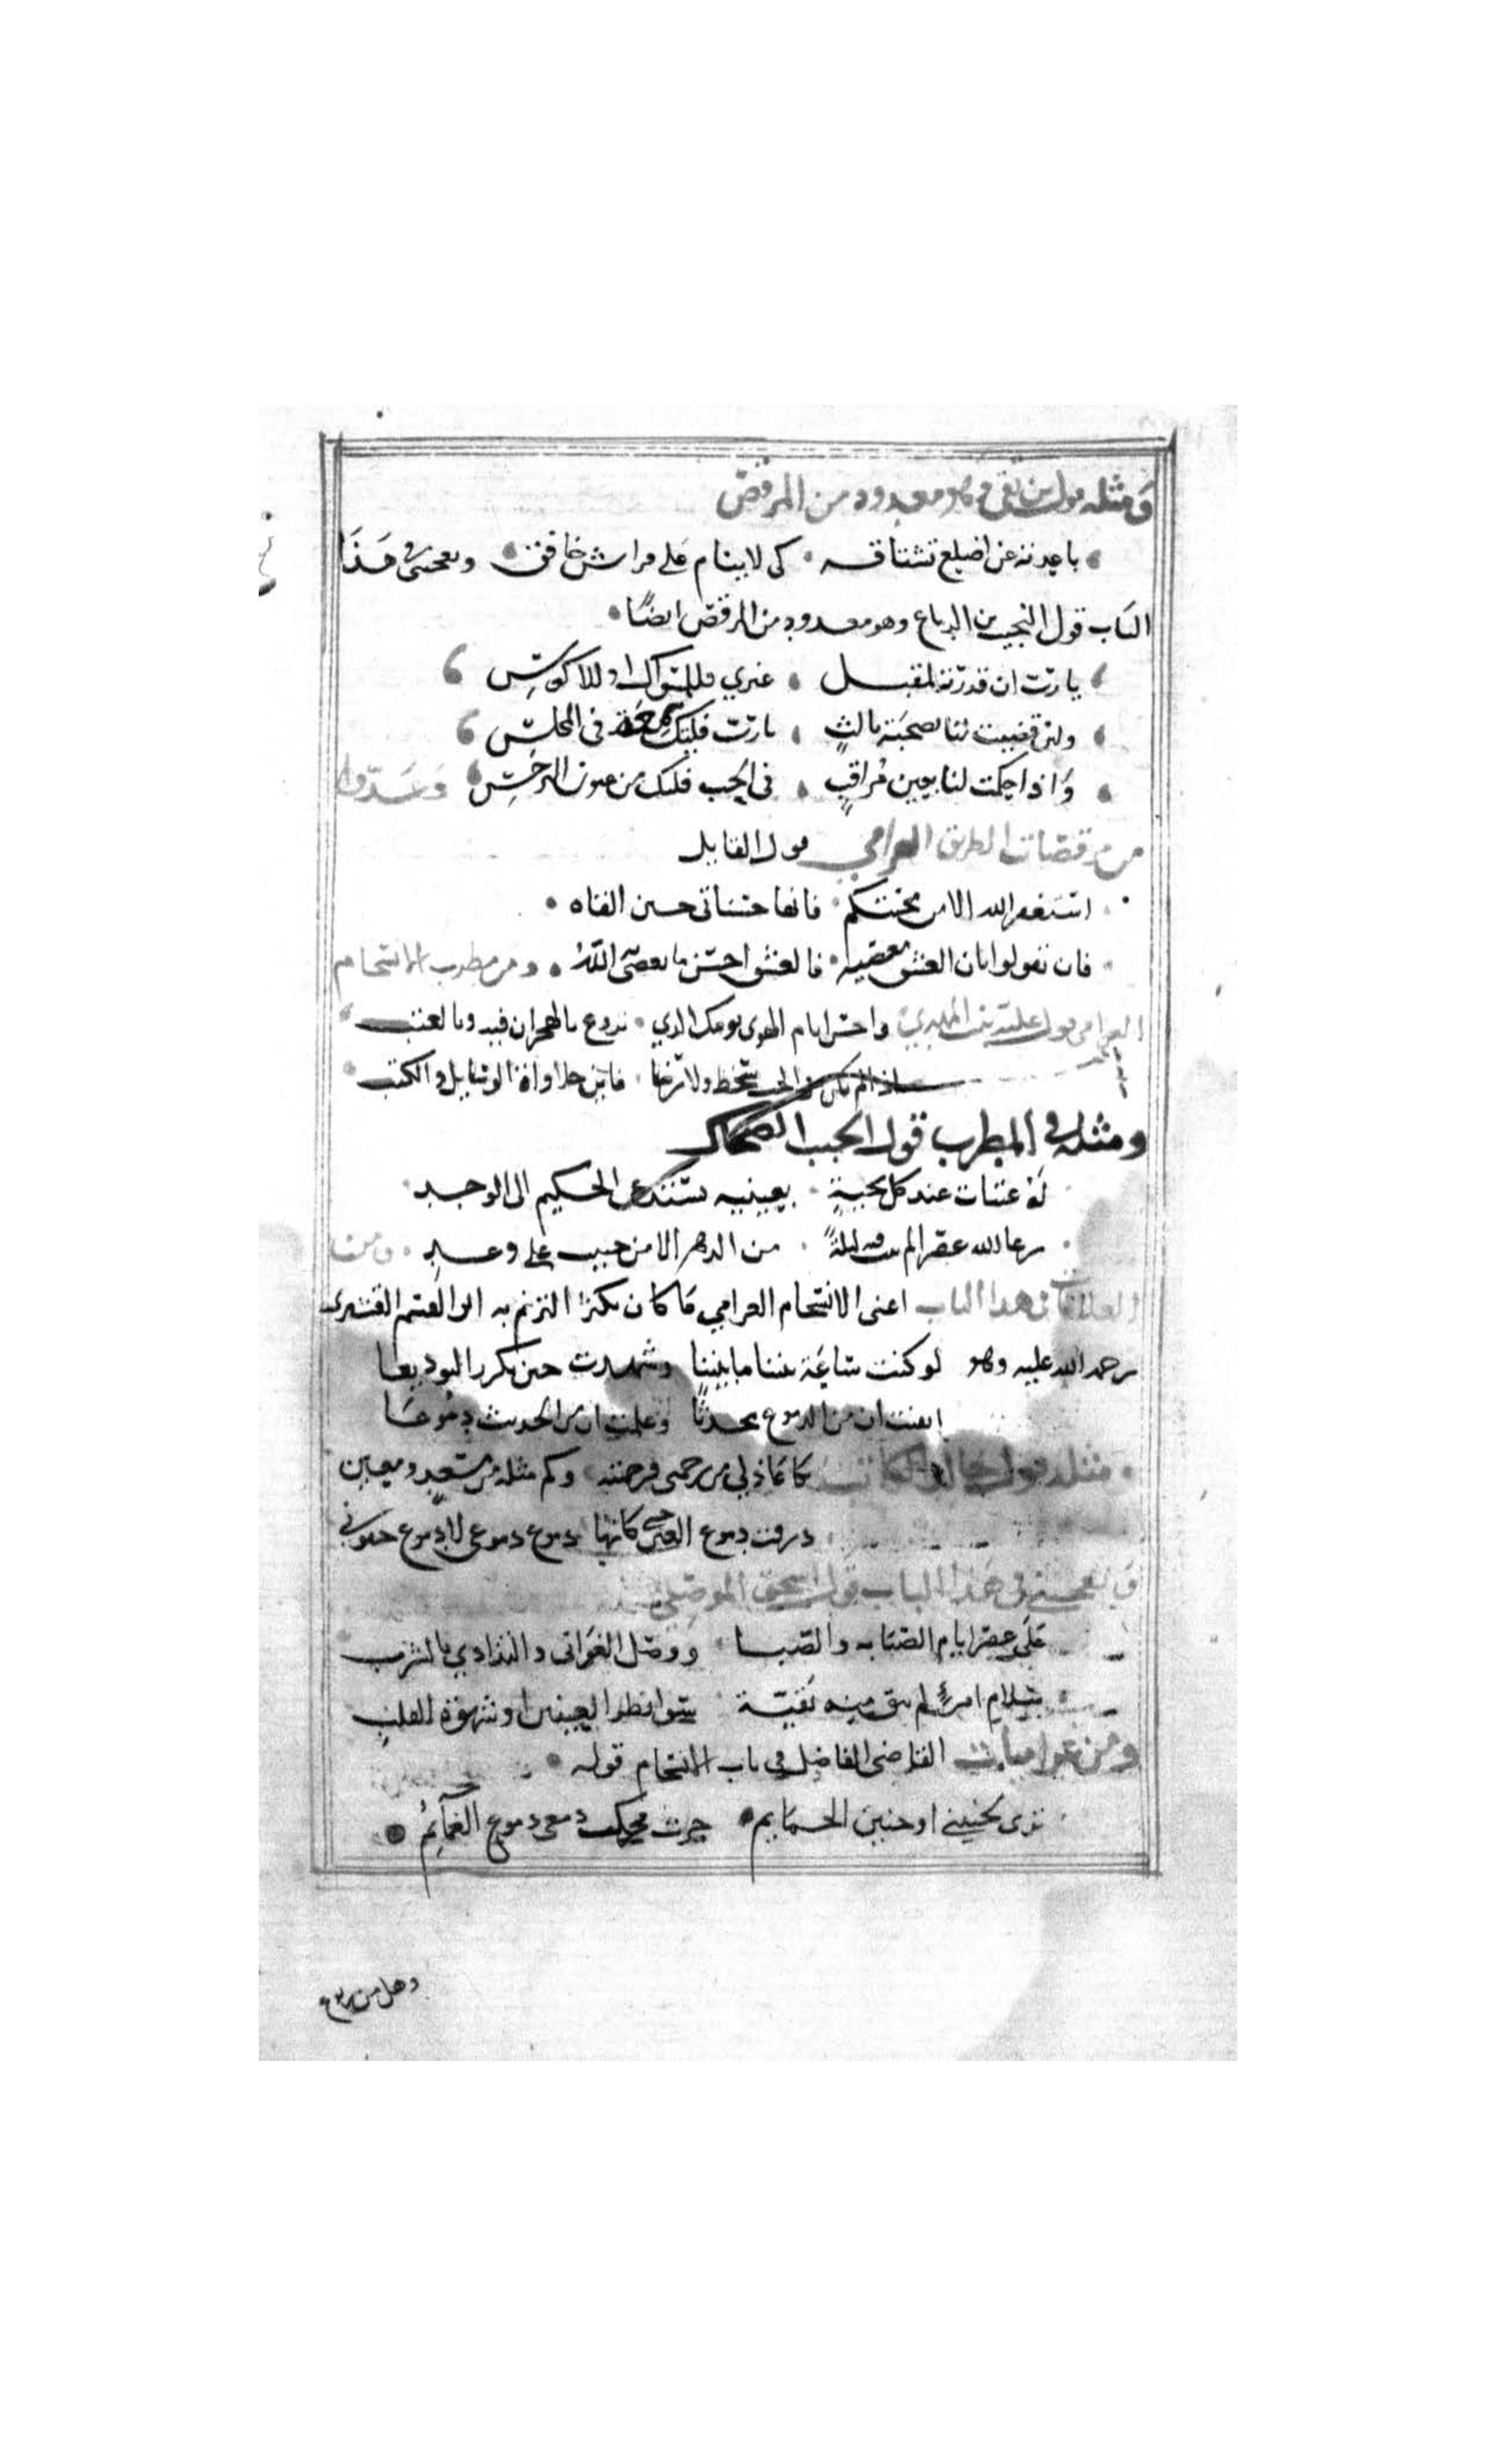 ومثله قول ابن بقي وهو معدود من المرقص
باعدته عن اضلع تشتاقه كى لا ينام على فراش خافق ويعجبنى فى هذا
الباب قول النجيب بن الدباغ وهو معدود من المرقص ايضًا
يا رب ان قدرته لمقبل غيري فللمسواك او للاكوس
ولئن قضيت لنا بصحبة ثالثٍ يا رب فليك شمعة فى المجلس
وَاذا حكمت لنا بعين مُراقبٍ فى الحب فلتك من عيون النرجس وعدوا
من مرقصات الطريق الغرامي قول القايل
استغفر الله الا من محبتكم فانها حسناتى حين القاه
فان تقولوا بان العشق معصية فالعشق احسن ما يعصى اللهُ ومن مطرب الانسجام
الغرامى قول علية بنت المهدي واحسن ايام الهوى يومك الذي تروع بالهجران فيه وبالعتب
اذا لم يكن فى الحب سخط ولا رضا فاين حلاوات الرسايل والكتب
ومثله فى المطرب قول المحب الضحاك
له عبثات عند كل تحيةٍ بعينيه تستدعى الحكيم الى الوجد
رعا الله عصرا لم نبت فيه ليلةً من الدهر الا من حبيب على وعد ومن
الغايات فى هذا الباب اعنى الانسجام الغرامي ما كان يكثر الترنم به ابو القسم القشيرى
رحمه الله عليه وهو لو كنت ساعة بيننا ما بيننا وشهدت حين نكرر التوديعا
ايقنت ان من الدموع محدثًا وعلمت ان من الحديث دموعَا
مثله قول خالد الكاتب بكا عاذلى من رحمى فرحمته وكم مثله من مسعدٍ ومعين
ورقت دموع العين حتى كانها دموع دموعى لا دموع جفونى
ويعجبنى فى هذا الباب قول اسحق الموصلى
على عصر ايام الصبابه والصبا ووصل الغوانى والتذاذي بالشرب
سلام امرئٍ لم يبق منه بقيّة سوا نظر العينين او شهوة القلب
ومن غراميات القاضى الفاضل فى باب الانسجام قوله
ترى لحنينى او حنين الحمايم جرت فحكت دمعى دموع الغمآئم
وهل من ضلوع